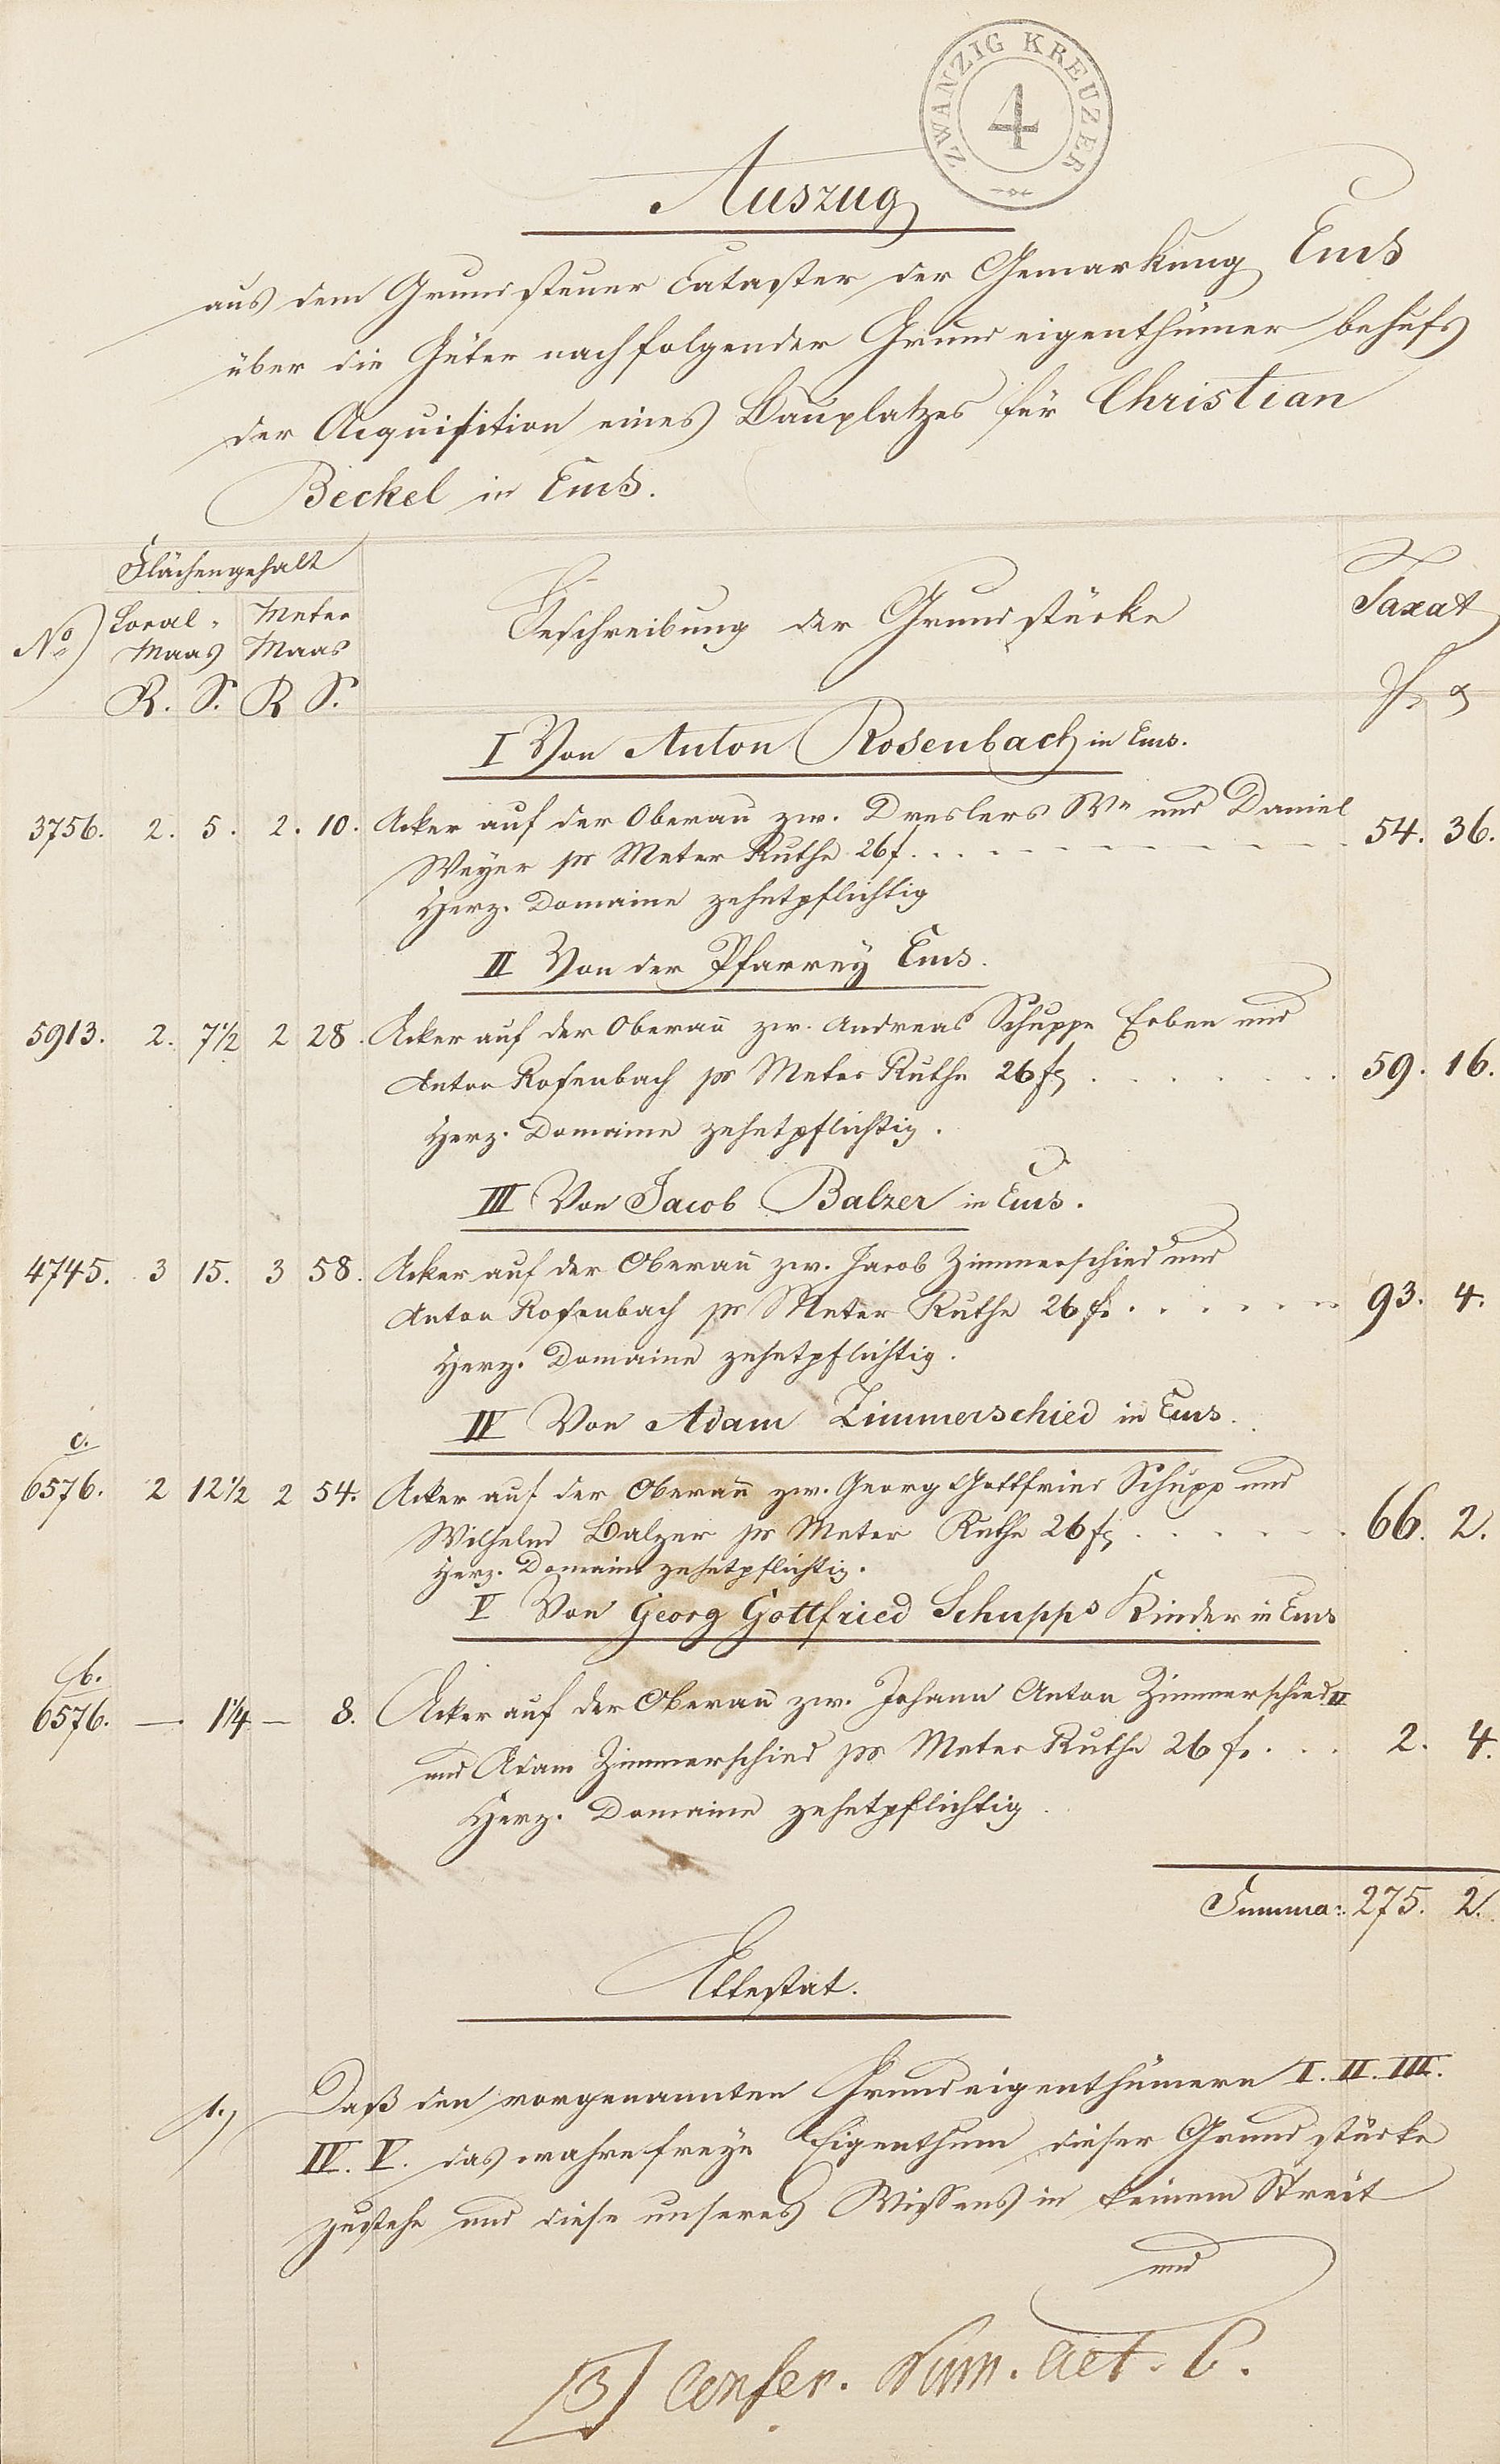 ZWANZIG KREUZER
4
Auszug
aus dem Grundsteuer Cataster der Gemarkung Ems
über die Güter nachfolgender Grundeigenthümer behufs
der Acquisition eines Bauplatzes für Christian
Beckel in Ems.
Flächengehalt
No Local- Maas Meter Maas Beschreibung der Grundstücke Taxat
R. S. R S. f. x
I Von Anton Rosenbach in Ems.
3756. 2. 5. 2. 10. Acker auf der Oberau zw. Dreslers Wn und Daniel
Weyer pr Meter Ruthe 26 f. 54. 36.
Herz. Domaine zehetpflichtig
II Von der Pfarrey Ems.
5913. 2. 7½ 2 28. Acker auf der Oberau zw. Andreas Schupps Erben und
Anton Rosenbach pr Meter Ruthe 26 f. 59. 16.
Herz. Domaine zehetpflichtig.
III Von Jacob Balzer in Ems.
4745. 3 15. 3 58. Acker auf der Oberau zw. Jacob Zimmerschied und
Anton Rosenbach pr Meter Ruthe 26 f. 93. 4.
Herz. Domaine zehetpflichtig.
IV Von Adam Zimmerschied in Ems.
c.
6576. 2 12½ 2 54. Acker auf der Oberau zw. Georg Gottfried Schupp und
Wilhelm Balzer pr Meter Ruthe 26 f. 66. 2.
Herz. Domaine zehetpflichtig.
V Von Georg Gottfried Schupps Kinder in Ems
b.
6576. — 1¼ — 8. Acker auf der Oberau zw. Johann Anton Zimmerschied II
und Adam Zimmerschied pr Meter Ruthe 26 f. 2. 4.
Herz. Domaine zehetpflichtig.
Summa: 275. 2.
Attestat.
1.) Daß den vorgenannten Grundeigenthümern I. II. III.
IV. V. das wahre freye Eigenthum dieser Grundstücke
zustehe und diese unseres Wissens in keinem Streit
und
[3] Confer. Num. act. 6.